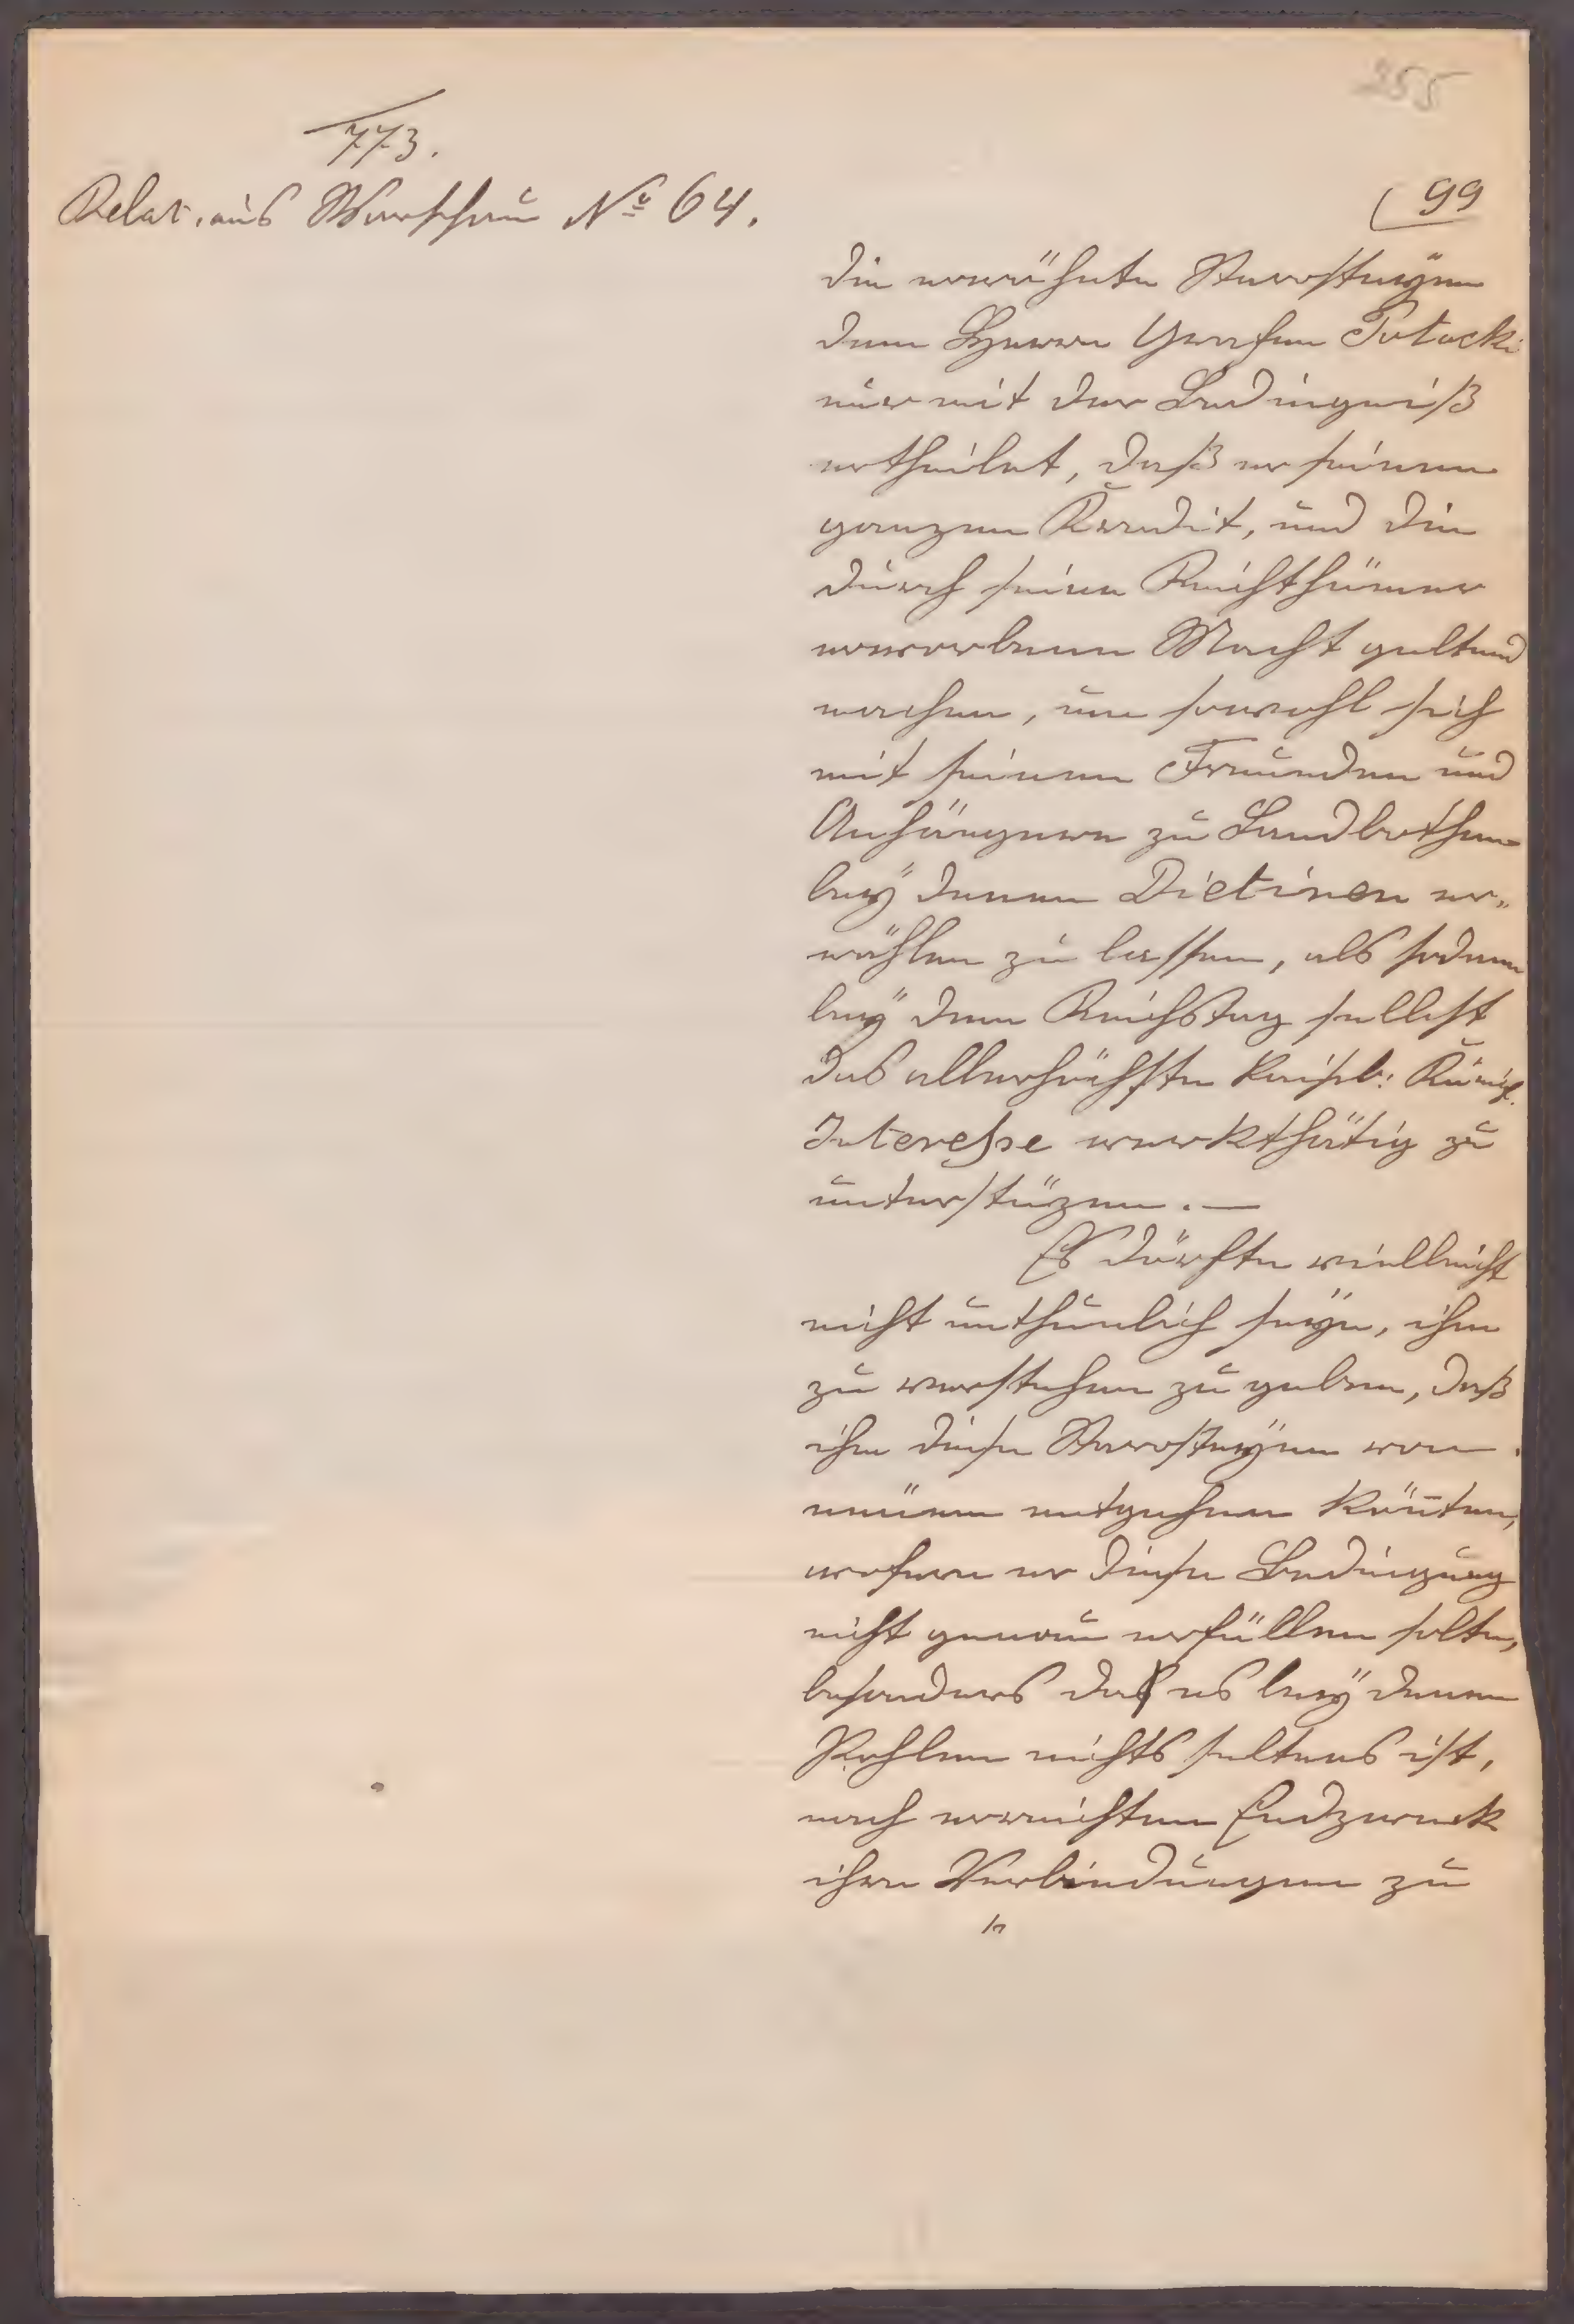 255
773.
Relat. aus Warschau No 64.
99
die erwähnte Starosteÿen
dem Herrn Grafen Potocki
nur mit der Bedingniß
ertheilet, daß er seinen
ganzen Kredit, und die
durch seine Reichthümer
erworbenen Macht geltend
machen, um sowohl sich
mit seinen Freunden und
Anhängern zu Landbothen
beÿ denen Dietinen er„
wählen zu lassen, als sodann
beÿ dem Reichstag selbst
das allerhöchste Kaisl: Königl.
Interesse werkthätig zu
unterstüzen. —
Es dörfte vielleicht
nicht unthunlich seÿn, ihm
zu verstehen zu geben, daß
ihm diese Starosteÿen von
neüem entgehen könten,
wofern er diese Bedingung
nicht genau erfüllen solte,
besonders da es beÿ denen
Pohlen nichts seltenes ist,
nach erreichtem Endzweck
ihre Verbindungen zu